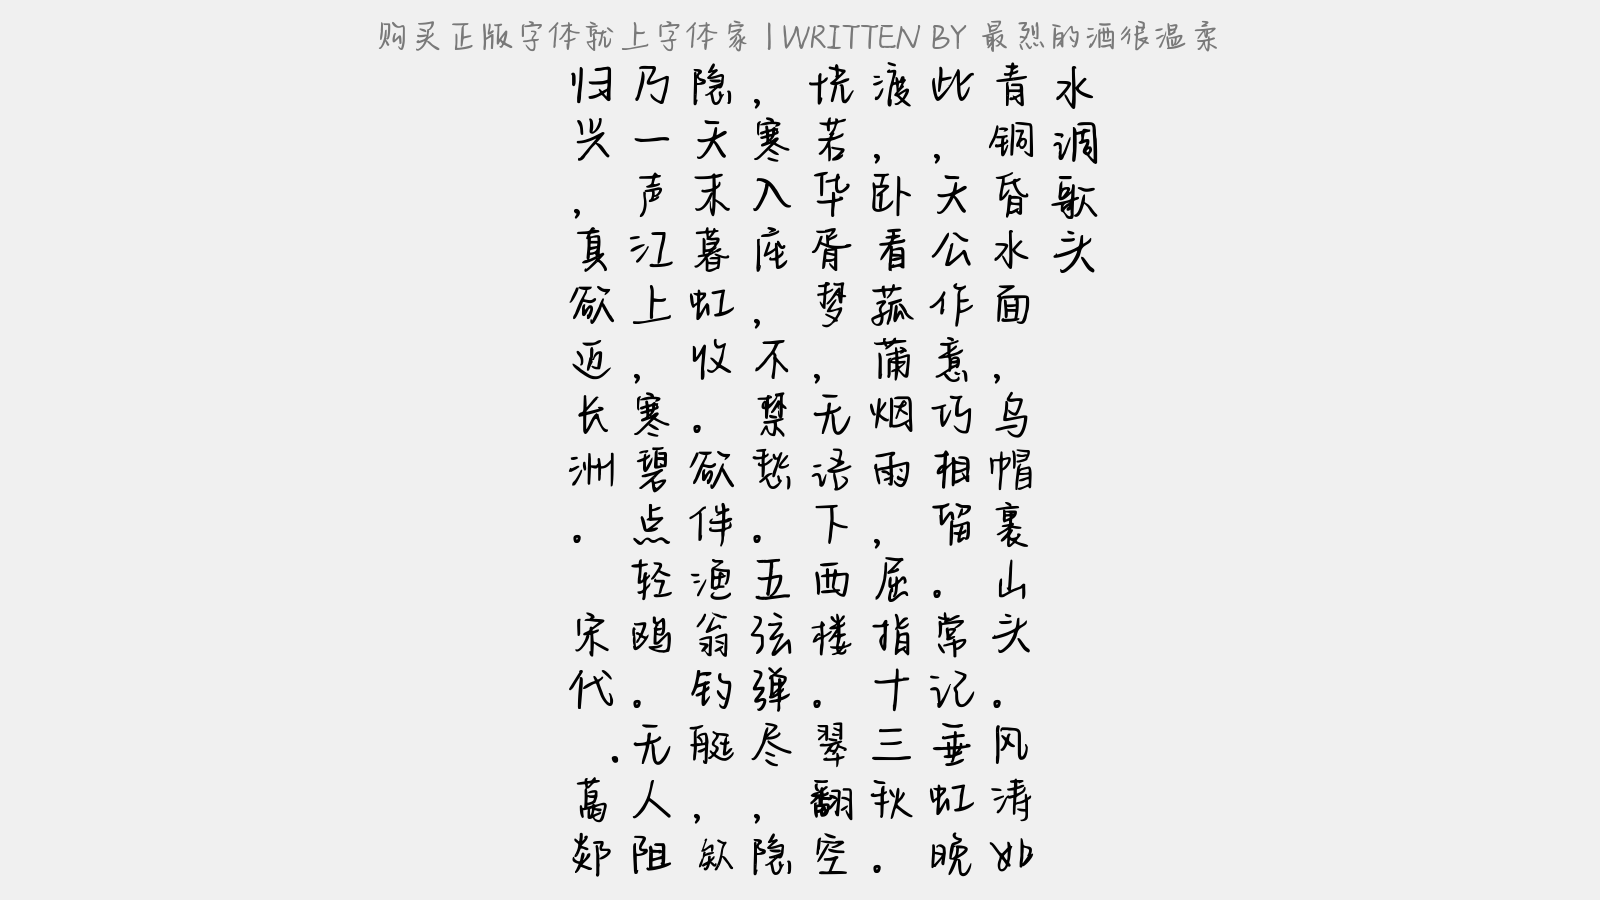 购买正版字体就上字体家 | WRITTEN BY 最烈的酒很温柔
水调歌头
青铜昏水面，乌帽裹山头。风涛如
此，天公作意巧相留。常记垂虹晚
渡，卧看菰蒲烟雨，屈指十三秋。
恍若华胥梦，无语下西楼。翠翻空
，寒入座，不禁愁。五弦弹尽，隐
隐天末暮虹收。欲伴渔翁钓艇，欸
乃一声江上，寒碧点轻鸥。无人阻
归兴，真欲迈长洲。 宋代.葛郯